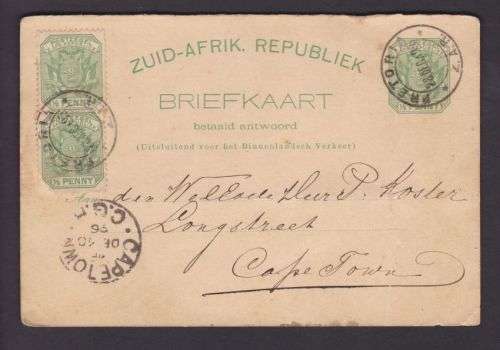 ZUID-AFRIK. REPUBLIEK
BRIEFKAART
betaald antwoord
(Uitsluitend voor het Binnenlandsch Verkeer)
½ PENNY
½ PENNY
PRETORIA
Z.A.R.
PRETORIA
Z.A.R.
Aan
den Weled. Heer P. Koster
Longstreet
Cape Town
CAPETOWN
C.G.H.
96